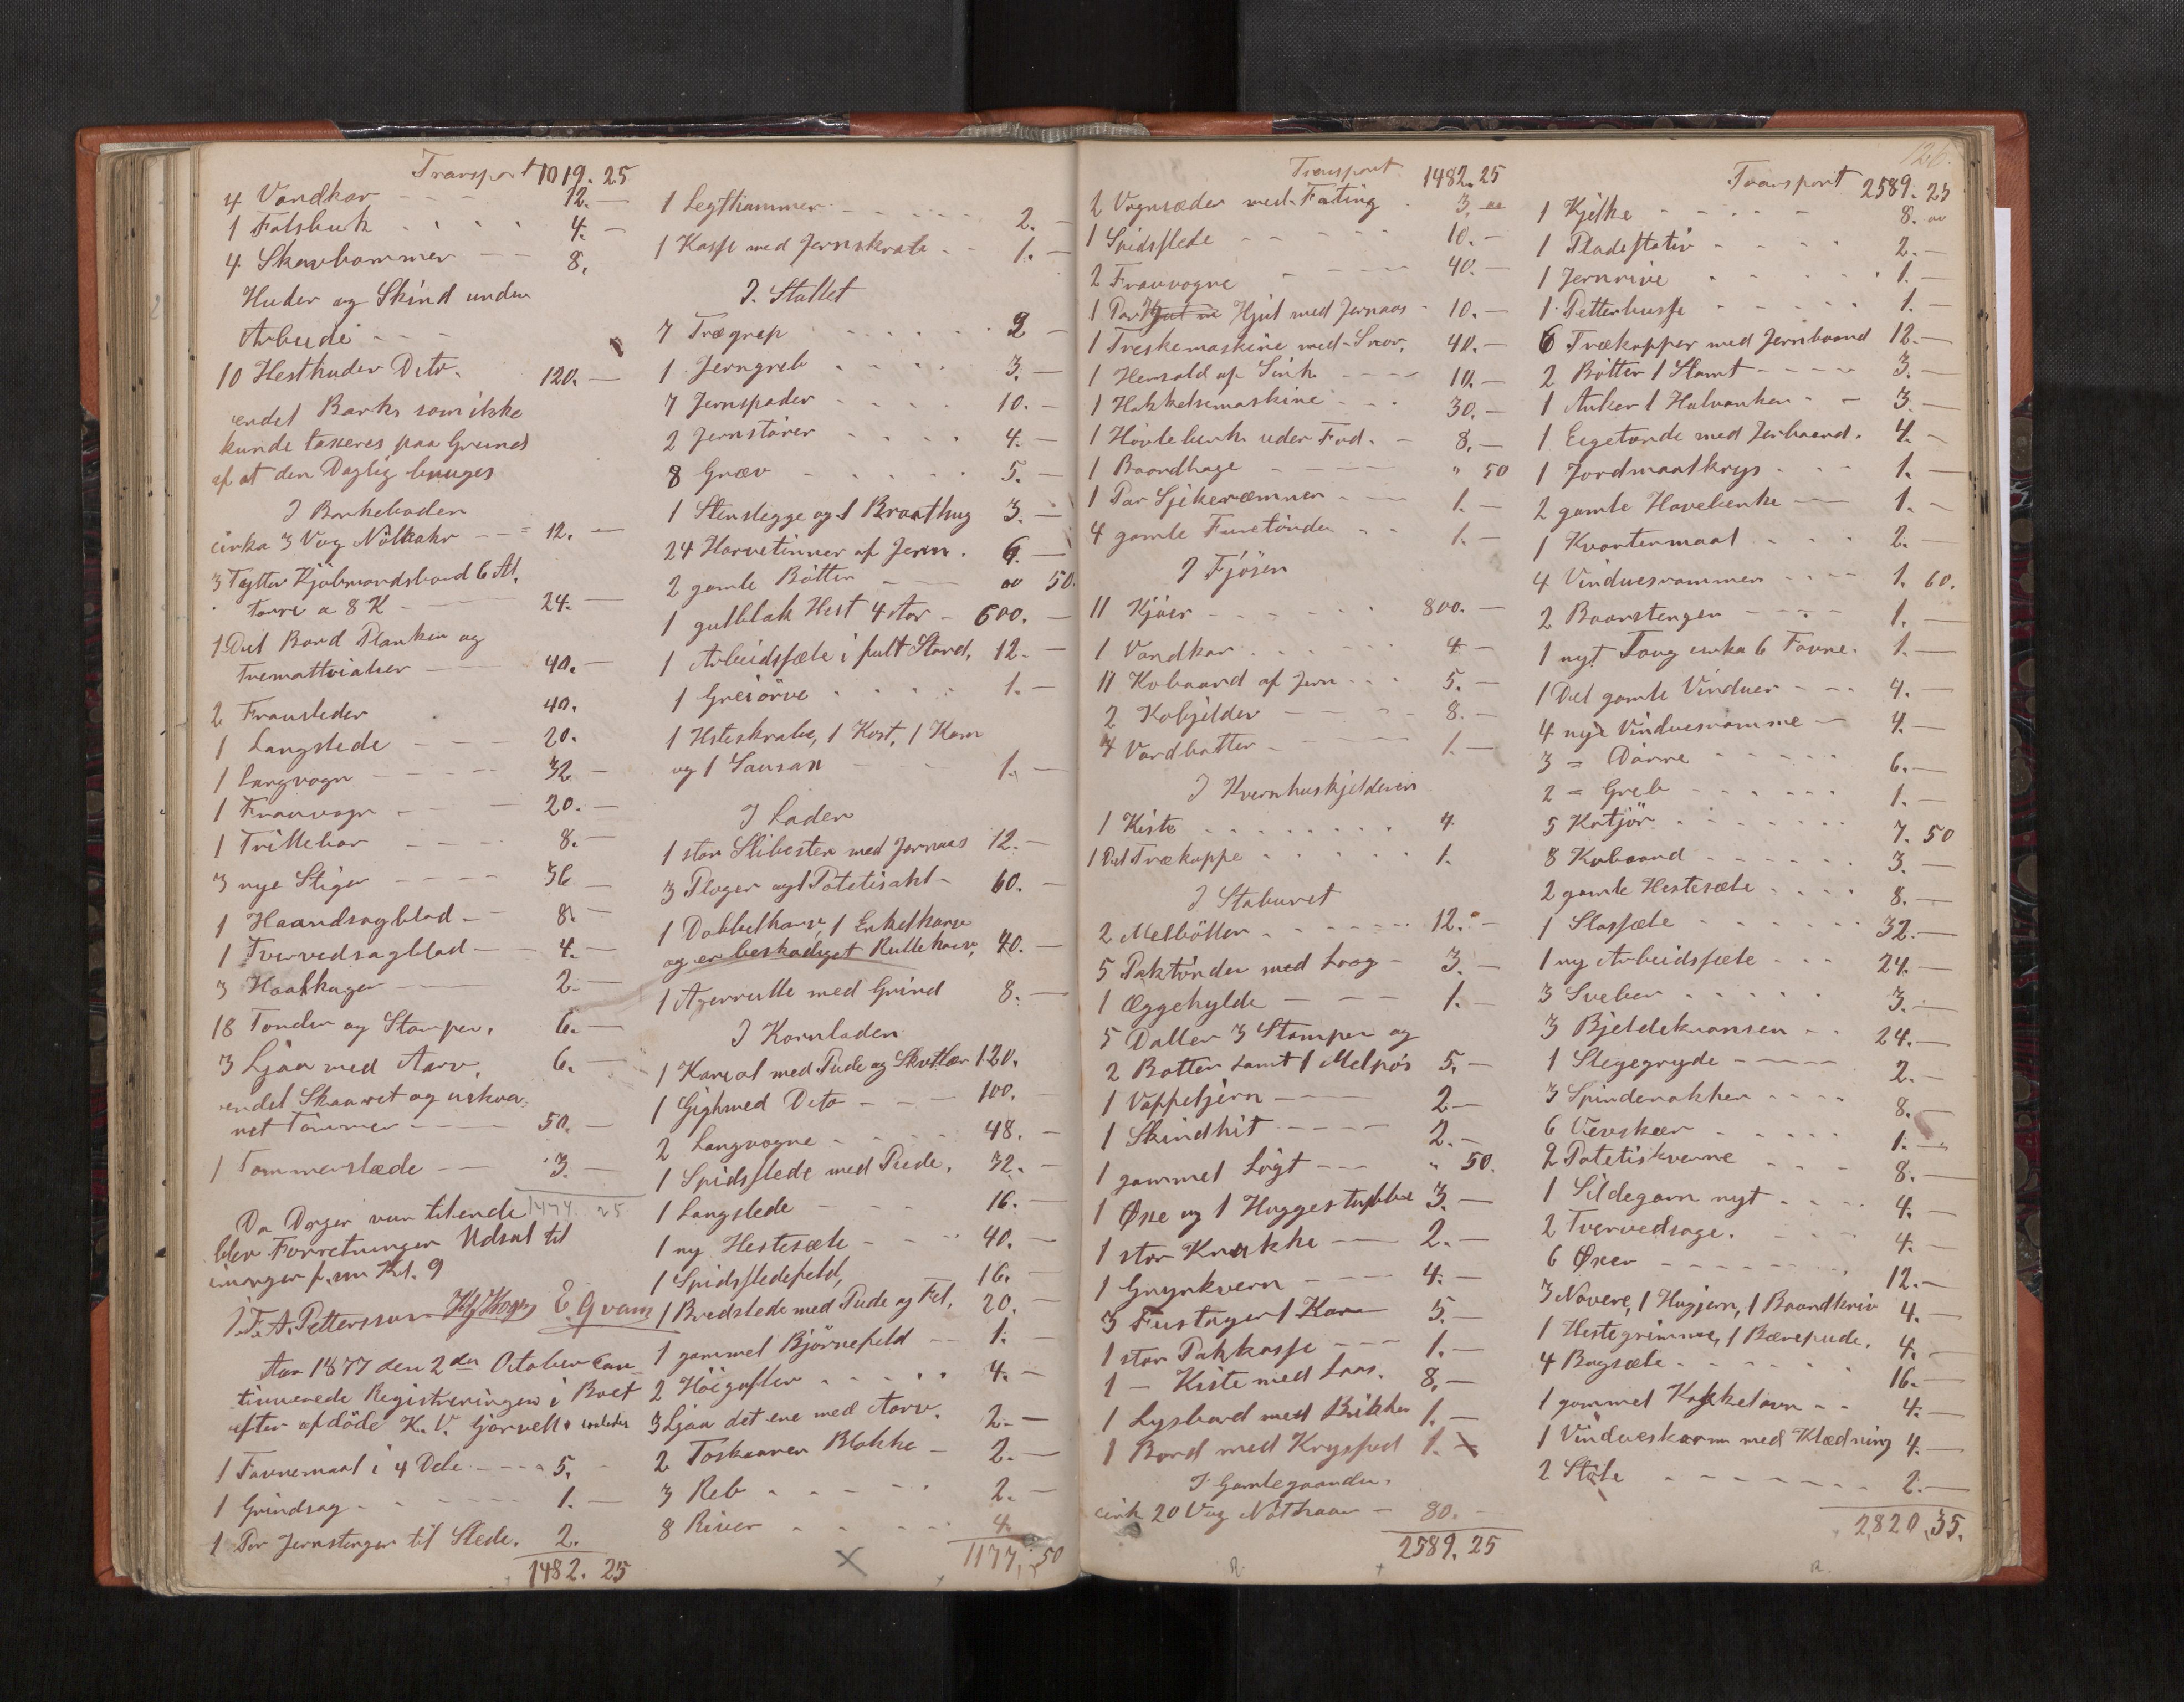 Transport 1019. 25
4 Vandkar - - - 12. —
1 Falsbuk . . . 4. —
4 Skavhammer — - 8.
Huder og Skind under
Arbeide - - -
10 Hesthuder Dito. 120. —
endel Bark som ikke
kunde taxeres paa Grund
af at den Daglig bruges
I Barkeboden
cirka 3 Vog Nöthahr - - - 12. —
3 Tyltter Kjöbmandsbord 6 Al.
Furre a 8 K - — 24. —
1 Del Bord Planker og
Trematrialier — 40. —
2 Frausleder 40.
1 Langslede - — 20.
1 Langvogn - - - - 32. —
1 Frauvogn - - - 20. —
1 Trillebor - - - - 8. —
3 nye Stiger - - - - 36 —
1 Haandsagblad - - 8. —
1 Tvervedsagblad - — 4. —
3 Haakager — 2. —
18 Tønder og Stamper. 6. —
3 Ljaa med Aarv. 6. —
endel Skaaret og uskaa-
ret Tømmer - - - - 50. —
1 Tømmerslæde - — 3. —
1474. 25
Da Dagen var tilende
blev Forretningen Udsat til
imorgen f. m Kl. 9
J. F. A. Pettersson E. Qvam
Aar 1877 den 2den October Con-
tinuerede Registreringen i Boet
efter afdöde K. V. Gjørvell
1 Favnemaal i 4 Dele - - - 5. -
1 Grindsag - - - - - 1. —
1 Par Jernstenger til Slede. 2.
1482. 25
1 Legthammer - - - - - 2. —
1 Kasse med Jernskrab - - 1. —
I. Stallet
7 Trægrep . . . . . . 2 —
1 Jerngreb . . . . 3. —
7 Jernspader . . . . 10. —
2 Jernstörer . . . . 4. —
8 Græv - - . . . . 5. —
1 Stenslegge og 1 Braathug 3. —
24 Harvetinner af Jern . 6. —
2 gamle Bötter - — 50.
1 gulblak Hest 4 Aar - 600. —
1 Arbeidssæle i fult Stand, 12. —
1 Greiörve . . . . . 1. —
1 Hsteskrabe, 1 Kost, 1 Kam
og 1 Sausax - — 1. —
I Laden
1 stor Slibesten med Jernaas 12. —
3 Ploger og 1 Potetisahl - 60. —
1 Dobbelharv, 1 Enkelharv
og en beskadiget Rulleharv, 40. —
1 Agerrulle med Grind 8. —
I Kornladen
1 Kariol med Pude og Skvetlær 120.
1 Gighmed Dito - - — 100. —
2 Langvogne . - . . . 48. —
1 Spidsslede med Pude, 32. —
1 Langslede - — 16. —
1 ny Hestesæle - - . . 40. —
1 Spidsledefeld, 16. —
1 Bredslede med Pude og Fel, 20. —
1 gammel Björnefeld - — 1. —
2 Höigafler . . . . . 4. —
3 Ljaa det ene med Aarv. 2. —
2 Toskaaren Blokke - 2. —
3 Reb . . - . . - . 2. —
8 River . . . . . 4.
1177. 50
Transport 1482. 25
2 Vognsæder med Fating . 3.
1 Spidsslede - - - - - 10. —
2 Frauvogne - - — 40. —
1 Par Hjul med Jernaas - 10. —
1 Treskemaskine med Snor. 40. —
1 Hersold af Sink - - - - 10. —
1 Hakkelsemaskine - - - 30. —
1 Hövlebenk uder Fod. - 8. —
1 Baandhage - - — " 50
1 Par Sjikeræmmer - - — 1. —
4 gamle Furetönder - - 1. —
I Fjösen
11 Kjöer - - . . - . 800. —
1 Vandkar . . . . . . 4 —
11 Kobaand af Jern - - . 5. —
2 Kobjelder - — - - 8. —
4 Vandbøtter - - — 1. —
I Kvernhuskjelderen
1 Kiste . . . . . . . . 4
1 Del Trækoppe . . . . . 1.
I Staburet
2 Melbötter . . . . - - 12. —
5 Paktönder med Loog - 3. —
1 Æggehylde - — - — 1. —
5 Daller 3 Stamper og
2 Bøtter samt 1 Melpös 5. —
1 Vappeljern - — 2 —
1 Skindhit - - - - 2. —
1 gammel Lögt - - - " 50.
1 Øxe og 1 Huggestubbe 3. —
1 stor Krukke - — 2. —
1 Grynkvern - - - - 4. —
3 Fustager 1 Kar — 5. —
1 stor Pakkasse - — 1. —
1 — Kiste med Laas. 8. —
1 Lysbord med Brikker 1. —
1 Bord med Krysfod 1.
I Gamlegaarden.
cirk 20 Vog Nöthaar — 80. —
2589. 25
126.
Transport 2589. 25
1 Kjelke - - - - - 8.
1 Pladestativ - - - - 2. —
1 Jernrive . . . . . . 1. —
1 Petterhusse - - - - - 1. —
6 Trækopper med Jernbaand 12. —
2 Bötter 1 Stamt - - - - 3. —
1 Anker 1 Halvanker - - 3. —
1 Eegetønde med Jerbaand . 4. —
1 Jordmaalkrys . . . 1. —
2 gamle Havebenke — 1. —
1 Kvartermaal . . . . 2. —
4 Vinduesrammer - - - - 1. 60.
2 Baarstenger - - - - 1. —
1 nyt Toug cirka 6 Favne. 1. —
1 Del gamle Vinduer - - - 4. —
4 nye Vinduesramme - — 4. —
3 = Dörre - - - - - 6. —
2 = Greb - - - . - - 1. —
5 Katjör . . . . . . . 7. 50
8 Kobaand - - - - - - 3. —
2 gamle Hestesæle . . . . 8. —
1 Stassæle - - - - - - - 32. —
1 ny Arbeidssæle - - - 24. —
3 Sveber . . . . . . 3. —
3 Bjeldekransen - - 24. —
1 Stegegryde - — 2. —
3 Spinderokker - - - - 8. —
6 Vevskeer . . . . . . 1. —
2 Potetiskverne . . . 8. —
1 Sildegarn nyt - . . . 4. —
2 Tvervedsage. . . . . 4. —
6 Øxer - - - - - - . 12. —
3 Navere, 1 Hugjern, 1 Baandkniv 4. —
1 Hestegrimme, 1 Bærepude. 4. —
4 Bogsæle - - - - - 16. —
1 gammel Kakkelavn - - 4. —
1 Vindueskarm med Klædning 4. —
2 Stole - - - - - - - 2. —
2820. 35.